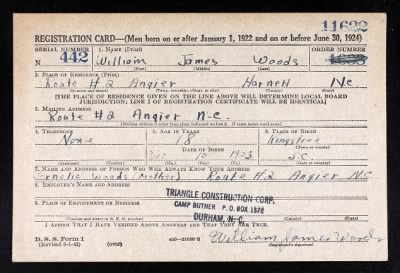 11632
REGISTRATION CARD—(Men born on or after January 1, 1922 and on or before June 30, 1924)
SERIAL NUMBER 1. Name (Print) ORDER NUMBER
N 442 William James Woods
(First) (Middle) (Last)
2. Place of Residence (Print)
Route #2 Angier Harnett N.c.
(Number and street) (Town, township, village, or city) (County) (State)
[THE PLACE OF RESIDENCE GIVEN ON THE LINE ABOVE WILL DETERMINE LOCAL BOARD
JURISDICTION; LINE 2 OF REGISTRATION CERTIFICATE WILL BE IDENTICAL]
3. Mailing Address
Route #2 Angier N.C.
[Mailing address if other than place indicated on line 2. If same insert word same]
4. Telephone 5. Age in Years 6. Place of Birth
None 18 Kingstree
Date of Birth (Town or county)
10 1923 S.C
(Exchange) (Number) (Mo.) (Day) (Yr.) (State or country)
7. Name and Address of Person Who Will Always Know Your Address
Woods (Mother) Route #2 Angier N.C
8. Employer's Name and Address
TRIANGLE CONSTRUCTION CORP.
CAMP BUTNER P. O. BOX 1572
9. Place of Employment or Business
DURHAM, N. C.
(Number and street or R. F. D. number) (Town) (County) (State)
I Affirm That I Have Verified Above Answers and That They Are True.
D. S. S. Form 1
(Revised 6-9-42) (over) William James Woods
(Registrant's signature)